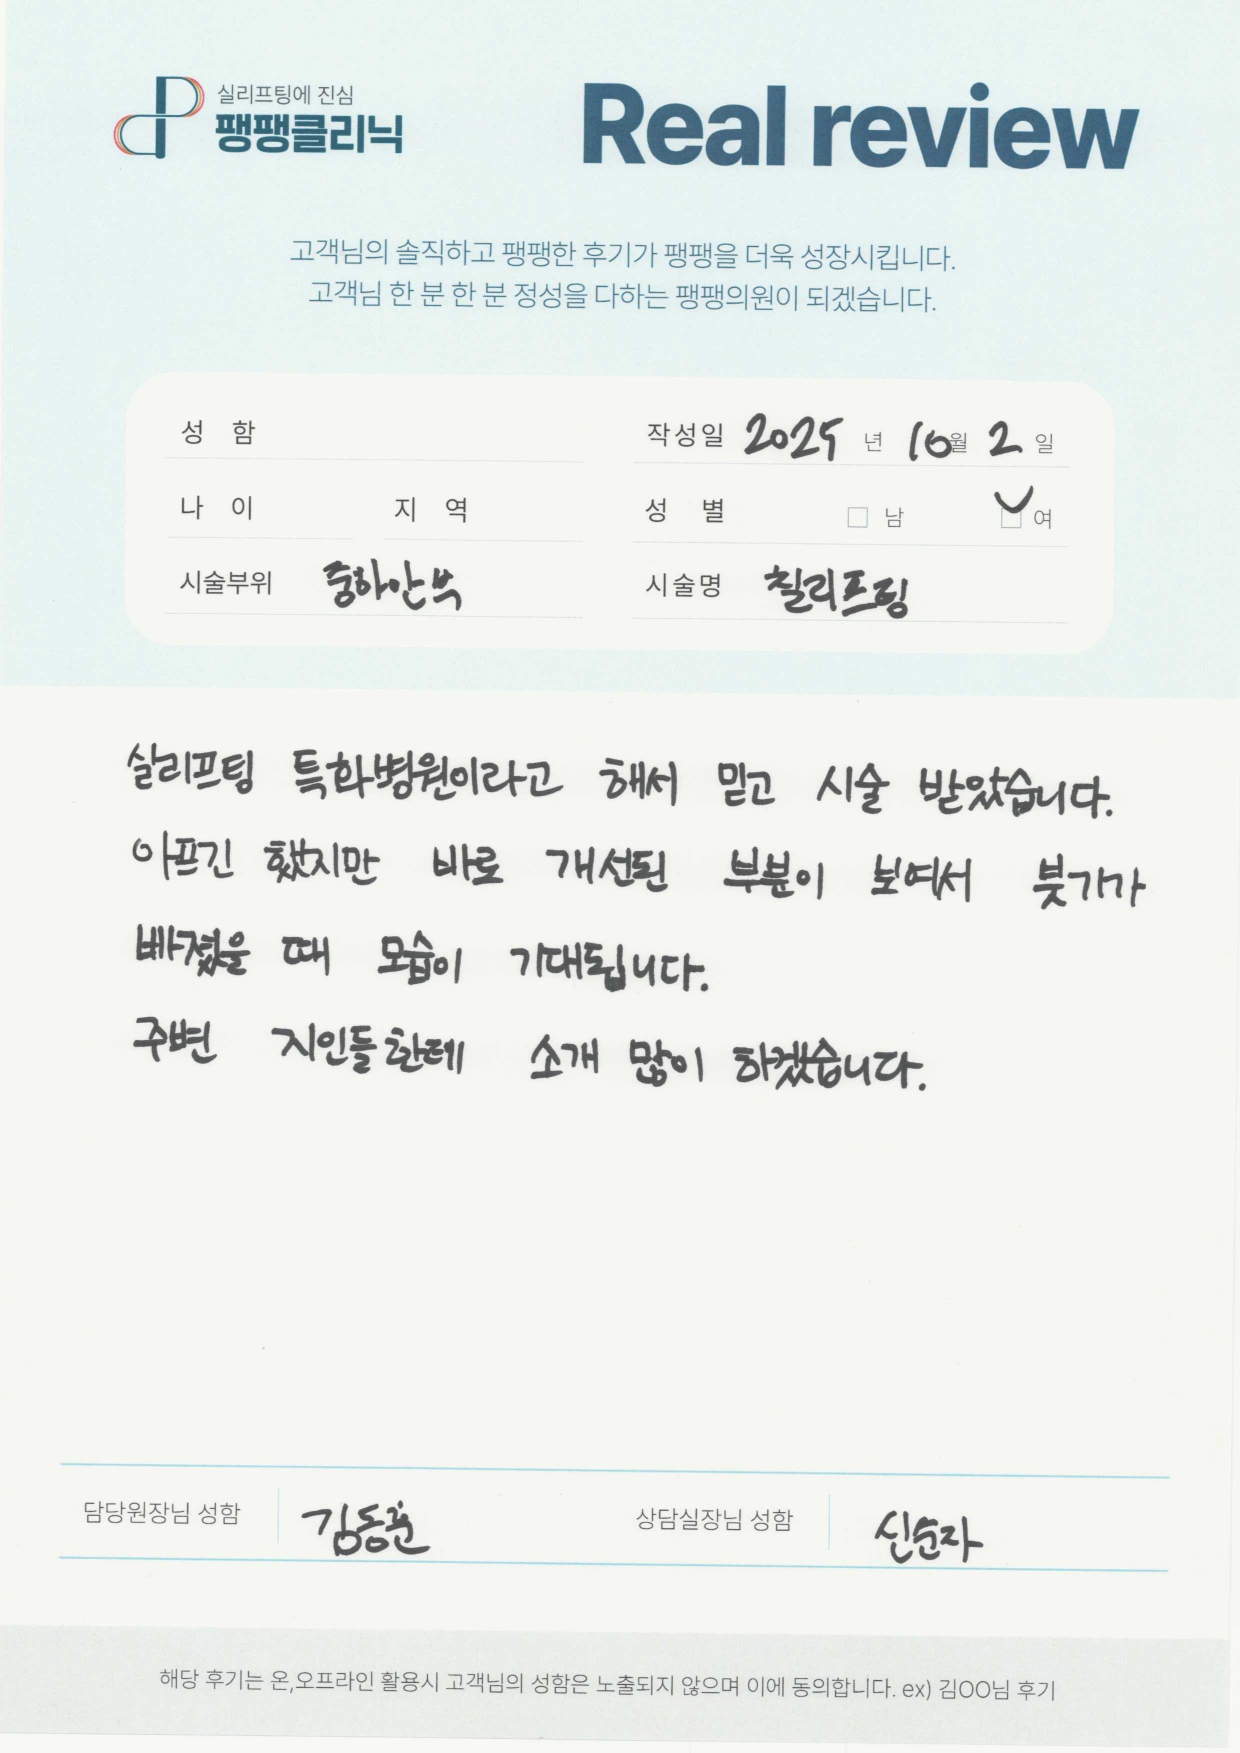 실리프팅에 진심
팽팽클리닉
Real review
고객님의 솔직하고 팽팽한 후기가 팽팽을 더욱 성장시킵니다.
고객님 한 분 한 분 정성을 다하는 팽팽의원이 되겠습니다.
성 함
작성일 2025 년 10월 2 일
나 이 지 역
성 별 남 여
시술부위 중하안부
시술명 실리프팅
실리프팅 특화병원이라고 해서 믿고 시술 받았습니다.
아프긴 했지만 바로 개선된 부분이 보여서 붓기가
빠졌을 때 모습이 기대됩니다.
주변 지인들한테 소개 많이 하겠습니다.
담당원장님 성함 김동훈
상담실장님 성함 신순자
해당 후기는 온,오프라인 활용시 고객님의 성함은 노출되지 않으며 이에 동의합니다. ex) 김OO님 후기